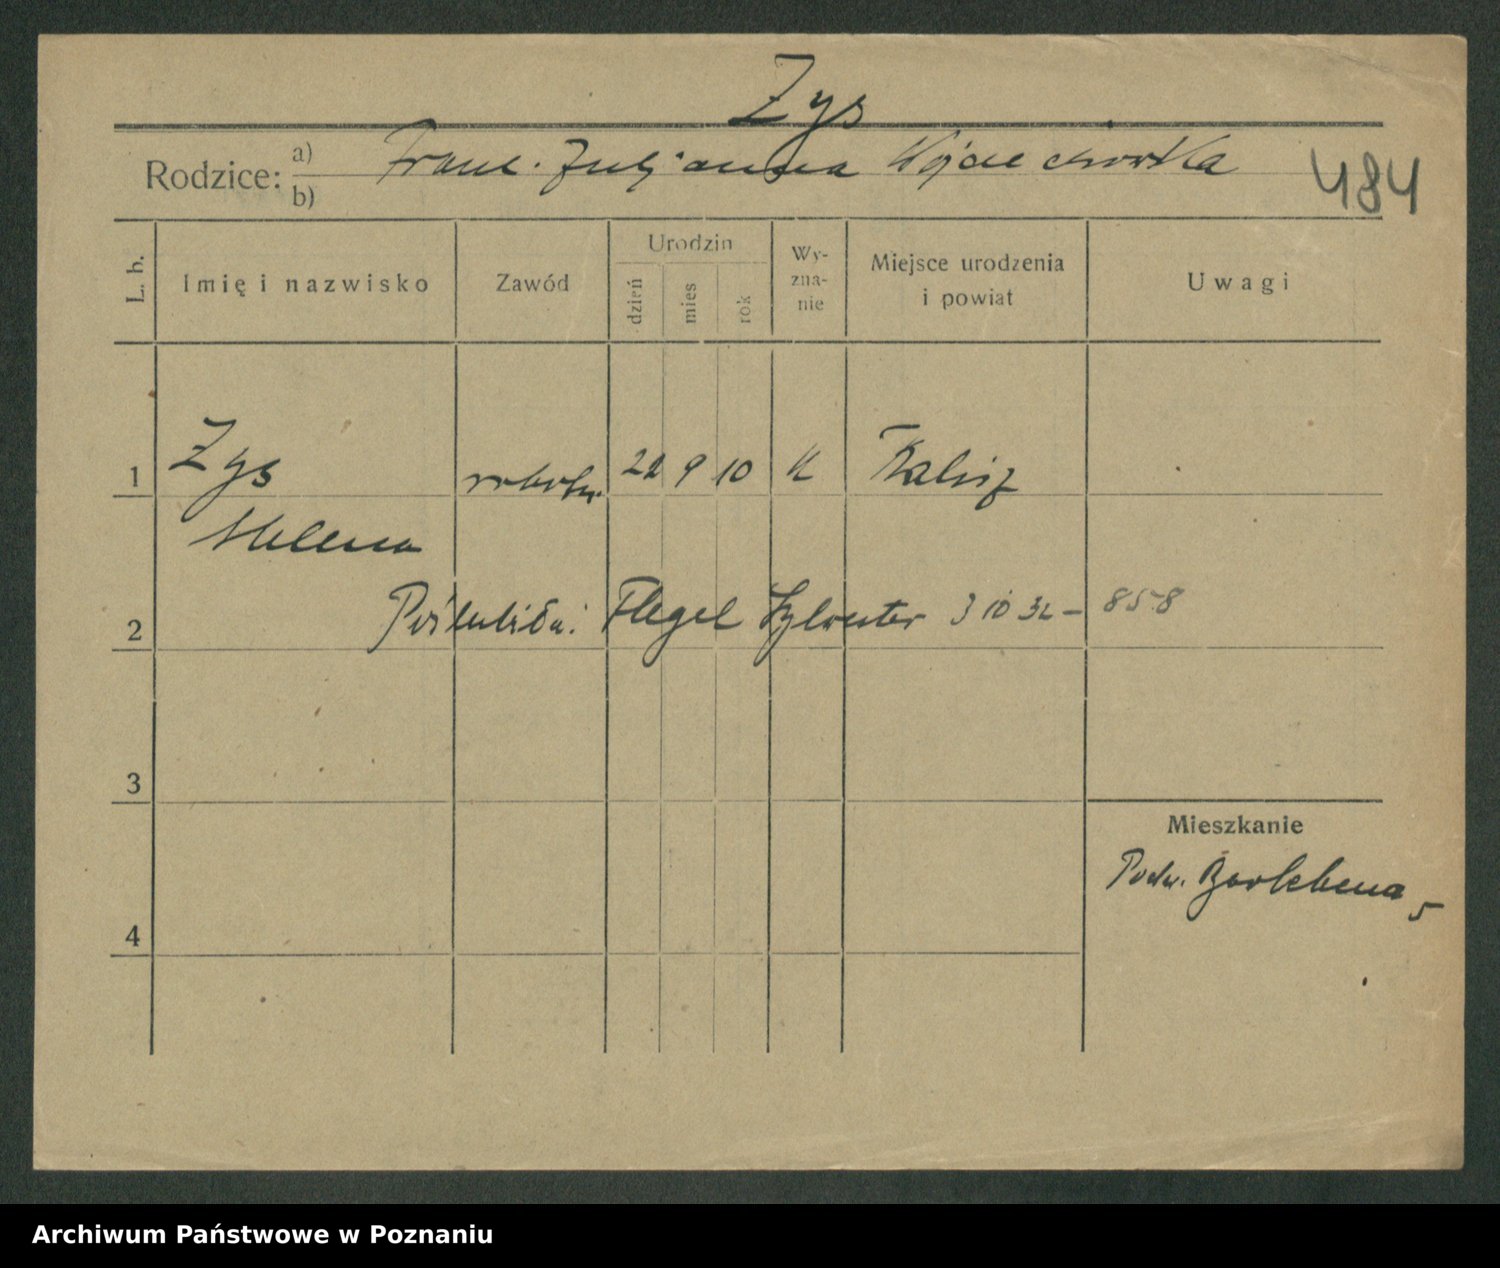 Zys
Rodzice: a) Franc. Juljanna Wojciechowska
b)
484
L. b.
Imię i nazwisko
Zawód
Urodzin
dzień
mies
rok
Wy-
zna-
nie
Miejsce urodzenia
i powiat
Uwagi
1 Zys robotn. 22 9 10 K Kalisz
Helena
2 Poślubiła: Flegel Sylwester 3 10 32 – 858
3
Mieszkanie
Podw. Garbebena 5
4
Archiwum Państwowe w Poznaniu